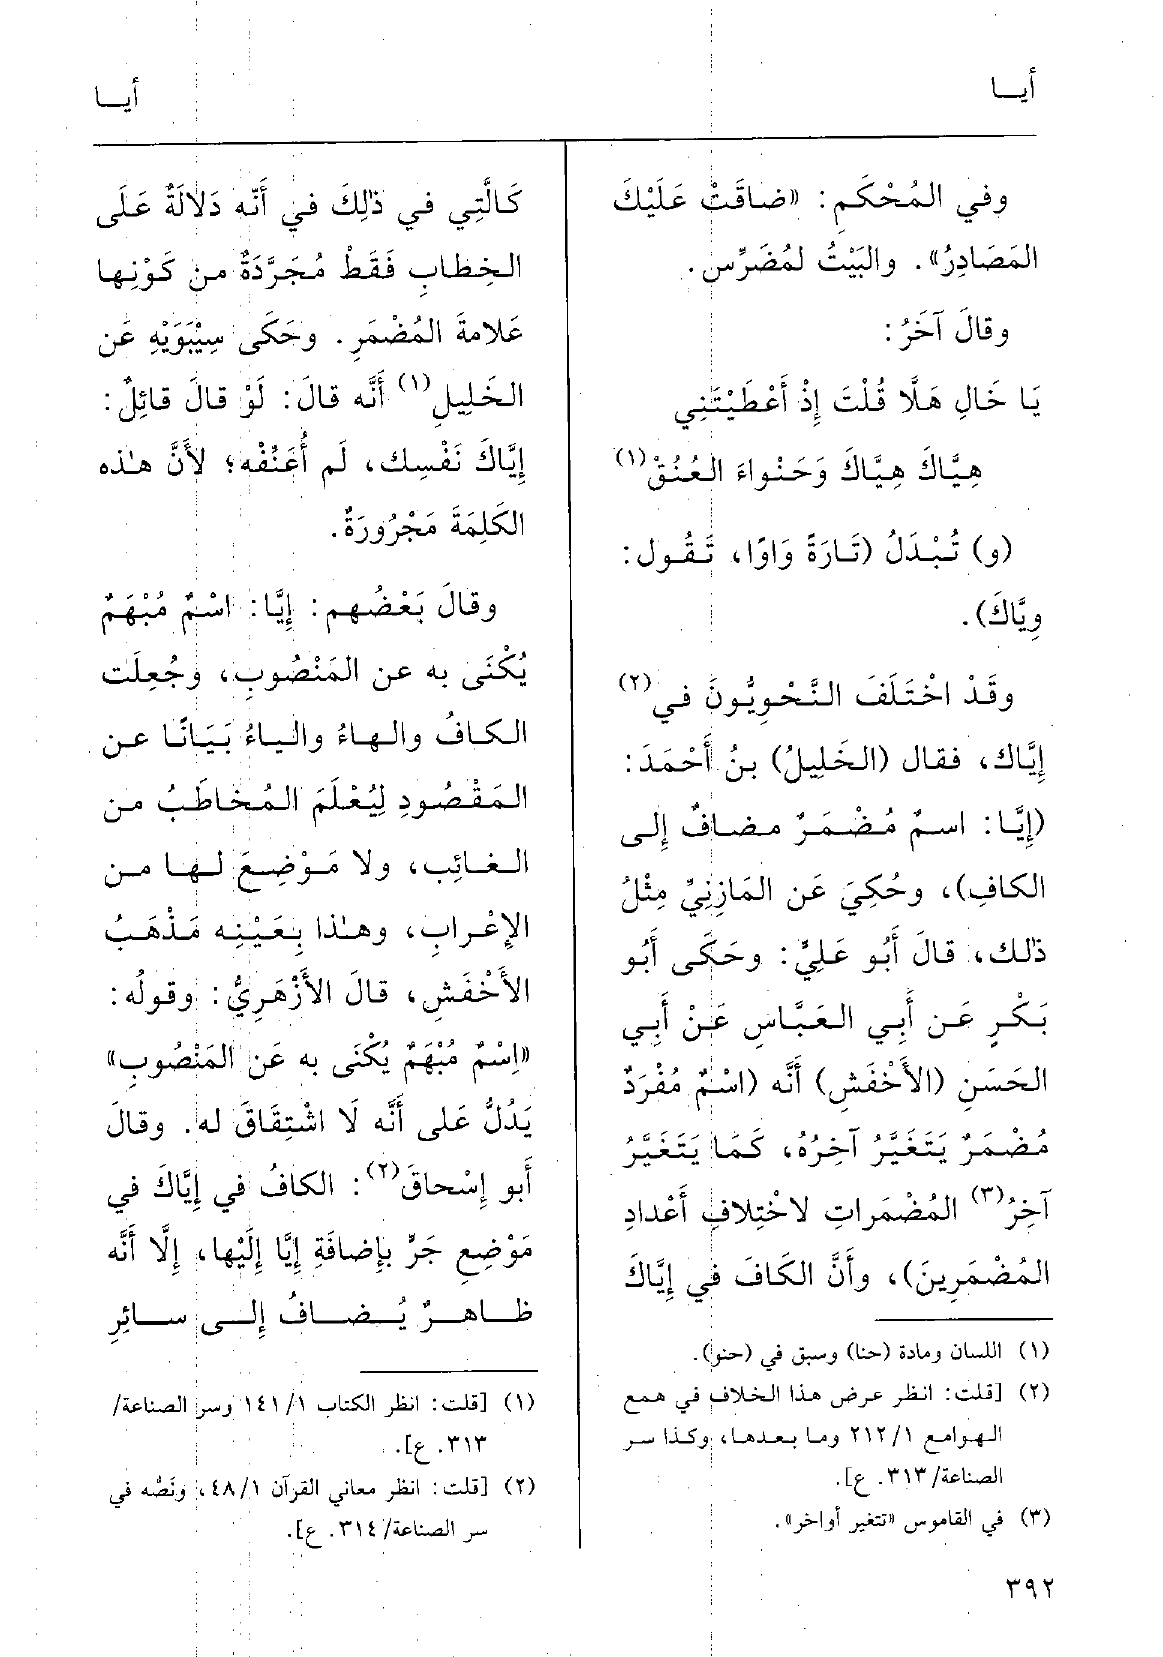 أيـا
أيـا
وفي المُحْكَم: «ضاقَتْ عَلَيْكَ
المَصَادِرُ». والبَيْتُ لمُضَرِّس.
وقالَ آخَرُ:
يَا خَالِ هَلَّا قُلْتَ إِذْ أَعْطَيْتَنِي
هِيَّاكَ هِيَّاكَ وَحَنْواءَ العُنُقْ(١)
(و) تُبْدَلُ (تَارَةً وَاوًا، تَقُول:
وِيَّاكَ).
وقَدْ اخْتَلَفَ النَّحْوِيُّونَ في(٢)
إِيَّاك، فقال (الخَلِيلُ) بنُ أَحْمَدَ:
(إِيَّا: اسمٌ مُضْمَرٌ مضافٌ إِلى
الكافِ)، وحُكِيَ عَن المَازِنِيِّ مِثْلُ
ذٰلك، قالَ أَبُو عَلِيٍّ: وحَكَى أَبُو
بَكْرٍ عَن أَبِي العَبَّاسِ عَنْ أَبِي
الحَسَنِ (الأَخْفَشِ) أَنَّه (اسْمٌ مُفْرَدٌ
مُضْمَرٌ يَتَغَيَّرُ آخِرُهُ، كَمَا يَتَغَيَّرُ
آخِرُ(٣) المُضْمَراتِ لاخْتِلافِ أَعْدادِ
المُضْمَرِينَ)، وأَنَّ الكَافَ في إِيَّاكَ
(١) اللسان ومادة (حنا) وسبق في (حنو).
(٢) [قلت: انظر عرض هذا الخلاف في همع
الهوامع ٢١٢/١ وما بعدها، وكذا سر
الصناعة/٣١٣. ع].
(٣) في القاموس «تتغير أواخر».
كَالَّتِي في ذٰلِكَ في أَنَّه دَلالَةٌ عَلَى
الخِطابِ فَقَطْ مُجَرَّدَةٌ من كَوْنِها
عَلامَةَ المُضْمَرِ. وحَكَى سِيْبَوَيْهِ عَن
الخَلِيلِ(١) أَنَّه قالَ: لَوْ قالَ قائِلٌ:
إِيَّاكَ نَفْسِك، لَم أُعَنِّفْه؛ لأَنَّ هٰذه
الكَلِمَةَ مَجْرُورَةٌ.
وقالَ بَعْضُهم: إِيَّا: اسْمٌ مُبْهَمٌ
يُكْنَى به عن المَنْصُوبِ، وجُعِلَت
الكافُ والهاءُ والياءُ بَيَانًا عن
المَقْصُودِ لِيُعْلَمَ المُخاطَبُ من
الغائِبِ، ولا مَوْضِعَ لها من
الإِعْرابِ، وهٰذا بِعَيْنِه مَذْهَبُ
الأَخْفَشِ، قالَ الأَزْهَرِيُّ: وقولُه:
«اِسْمٌ مُبْهَمٌ يُكْنَى به عَن المَنْصُوبِ»
يَدُلُّ عَلى أَنَّه لَا اشْتِقَاقَ له. وقالَ
أبو إِسْحاقَ(٢): الكافُ في إِيَّاكَ في
مَوْضِعِ جَرٍّ بِإِضافَةِ إِيَّا إِلَيْها، إِلَّا أَنَّه
ظاهِرٌ يُضافُ إِلى سائِرِ
(١) [قلت: انظر الكتاب ١٤١/١ وسر الصناعة/
٣١٣. ع].
(٢) [قلت: انظر معاني القرآن ٤٨/١، ونَصُّه في
سر الصناعة/٣١٤. ع].
٣٩٢